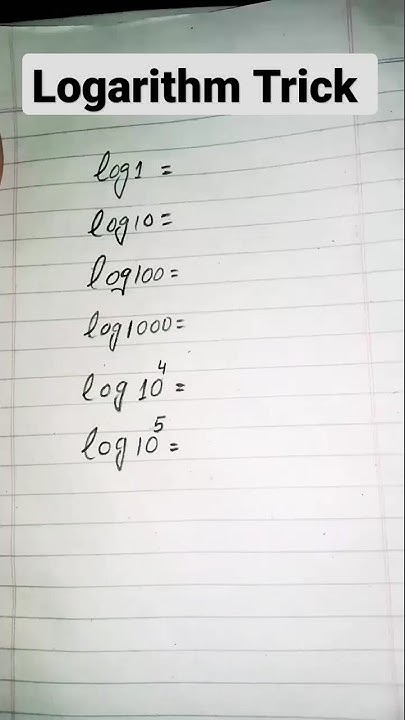 Logarithm Trick
log1 =
log10=
log100=
log1000=
log 10⁴ =
log 10⁵ =